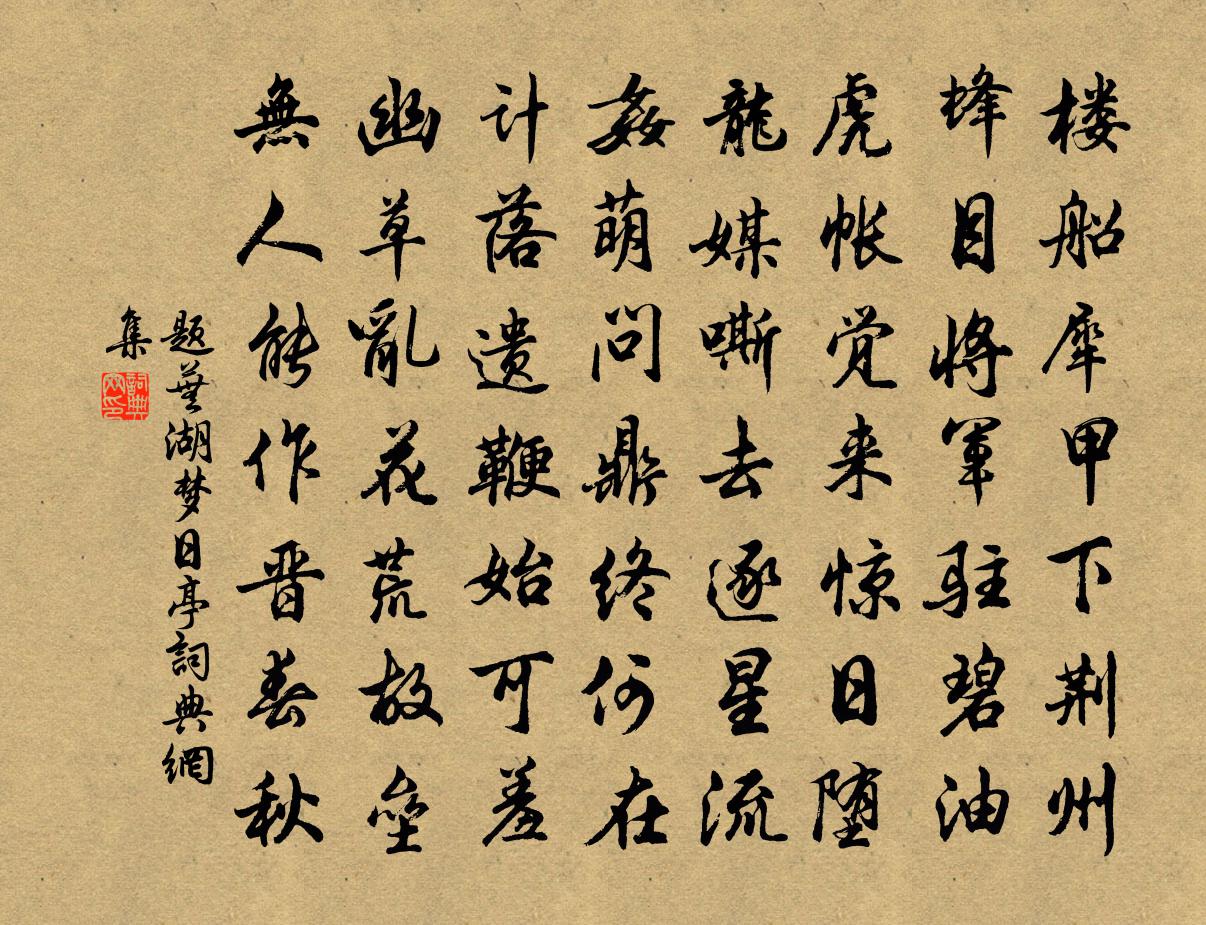 楼船犀甲下荆州
蜂目将军驻碧油
虎帐觉来惊日堕
龍媒嘶去逐星流
姦萌问鼎终何在
计落遗鞭始可羞
幽草亂花荒故垒
無人能作晋春秋
题芜湖梦日亭詞典網
集
詞典